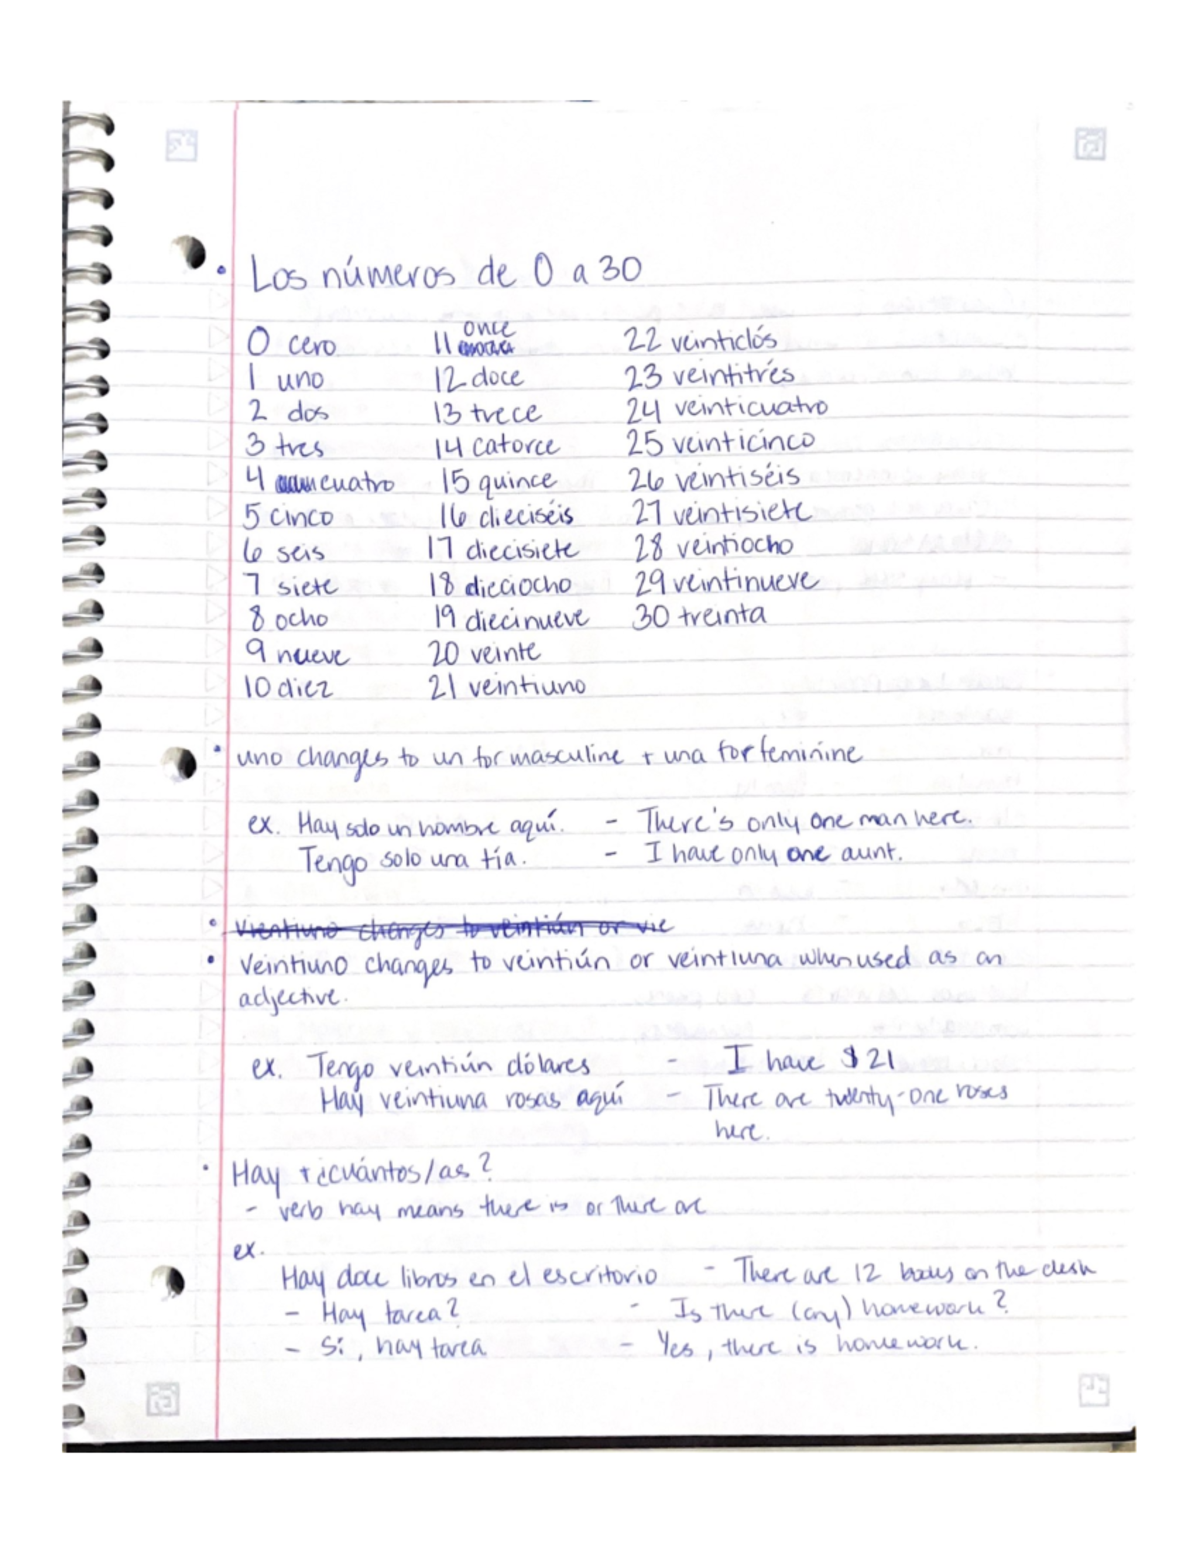 • Los números de 0 a 30
0 cero 11 once 22 veintidós
1 uno 12 doce 23 veintitrés
2 dos 13 trece 24 veinticuatro
3 tres 14 catorce 25 veinticinco
4 cuatro 15 quince 26 veintiséis
5 cinco 16 dieciséis 27 veintisiete
6 seis 17 diecisiete 28 veintiocho
7 siete 18 dieciocho 29 veintinueve
8 ocho 19 diecinueve 30 treinta
9 nueve 20 veinte
10 diez 21 veintiuno
• uno changes to un for masculine + una for feminine
ex. Hay solo un hombre aquí. - There's only one man here.
Tengo solo una tía. - I have only one aunt.
• Vientiuno changes to veintiún or vie
• Veintiuno changes to veintiún or veintiuna when used as an
adjective.
ex. Tengo veintiún dólares - I have $21
Hay veintiuna rosas aquí - There are twenty-one roses
here.
• Hay + ¿cuántos/as?
- verb hay means there is or there are
ex.
Hay doce libros en el escritorio - There are 12 books on the desk
- Hay tarea? - Is there (any) homework?
- Sí, hay tarea - Yes, there is homework.